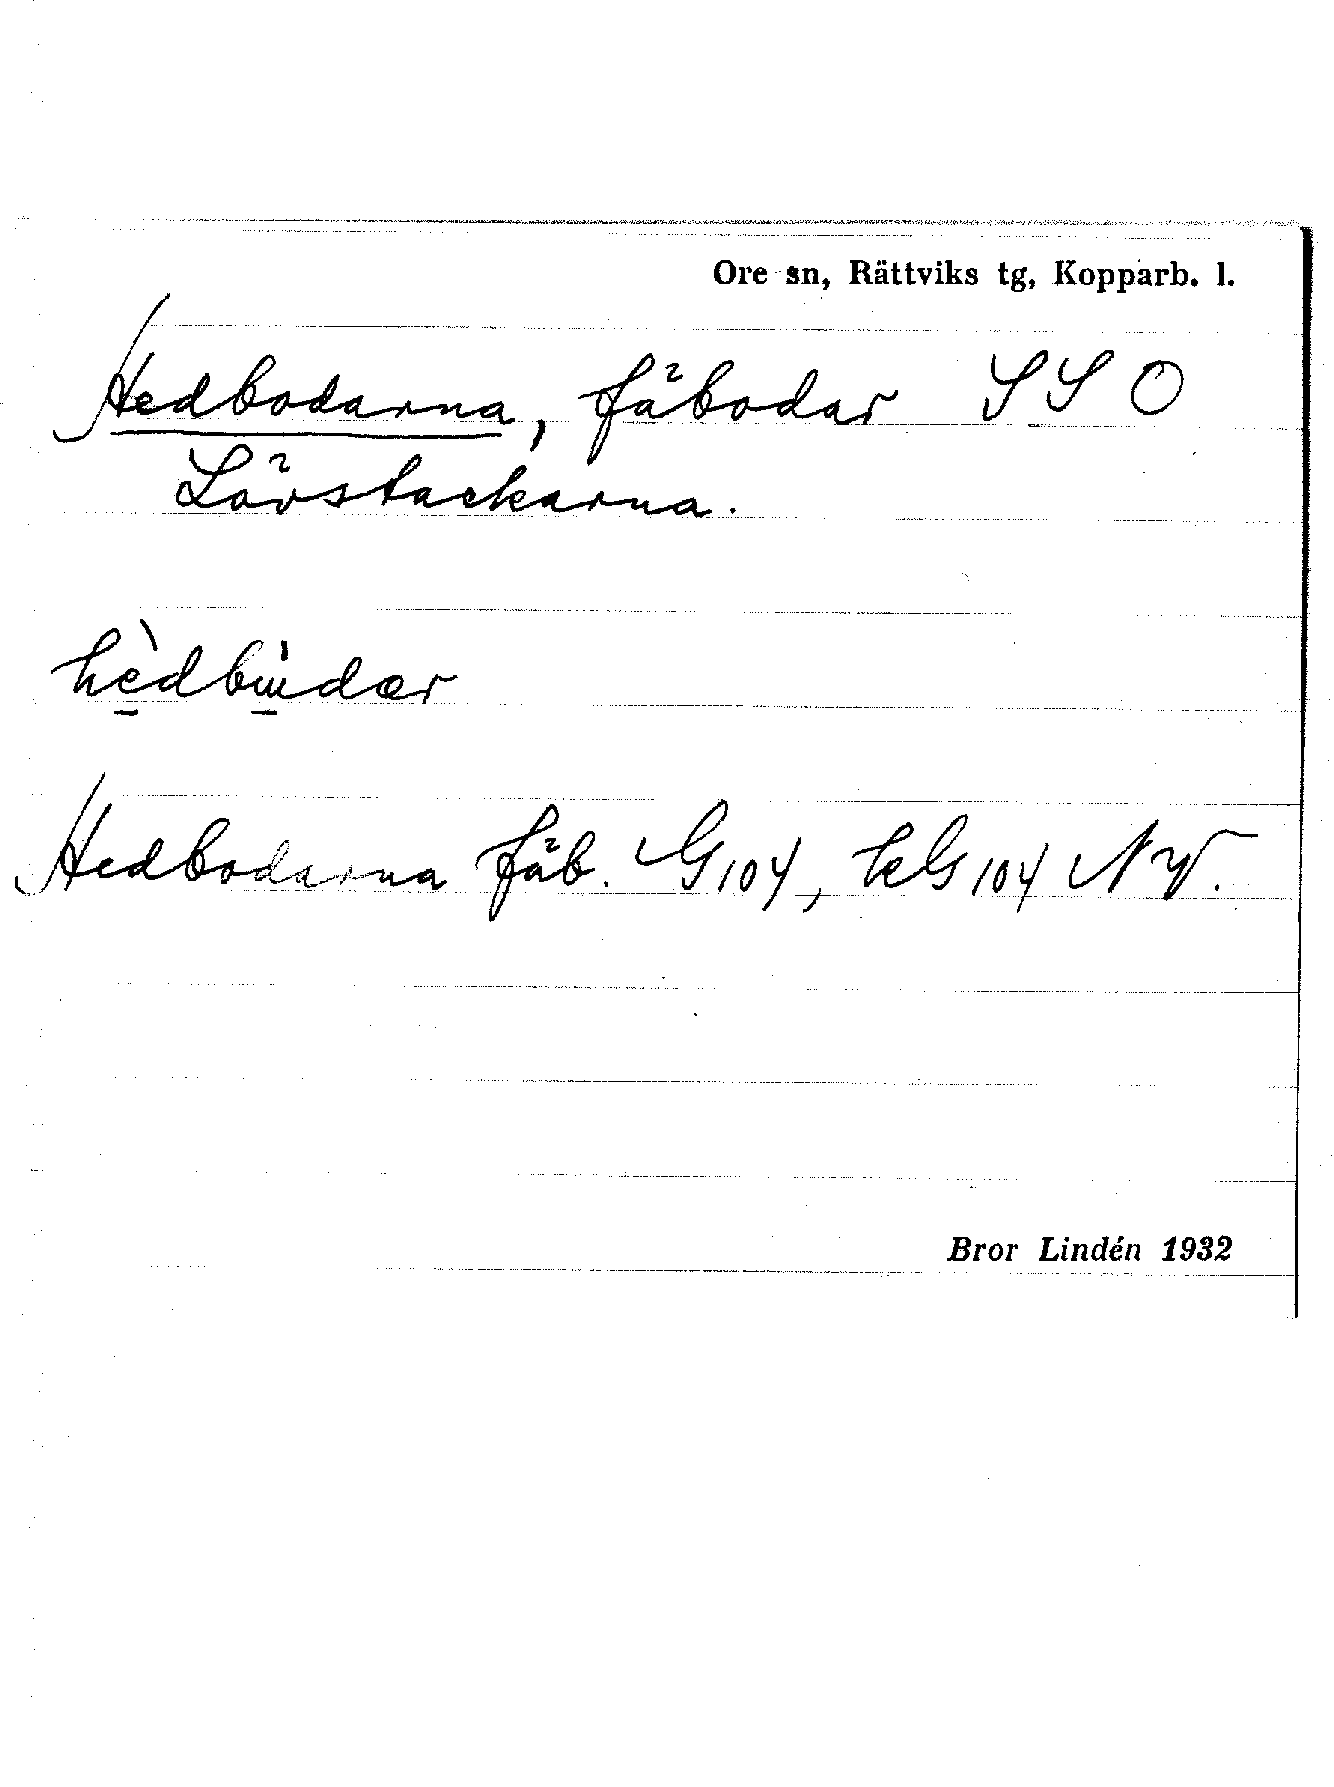 Ore sn, Rättviks tg, Kopparb. l.
Hedbodarna, fäbodar SSO
Lövstackarna.
hèdbu̇dær
Hedbodarna fäb. G104, kG104 NV.
Bror Lindén 1932